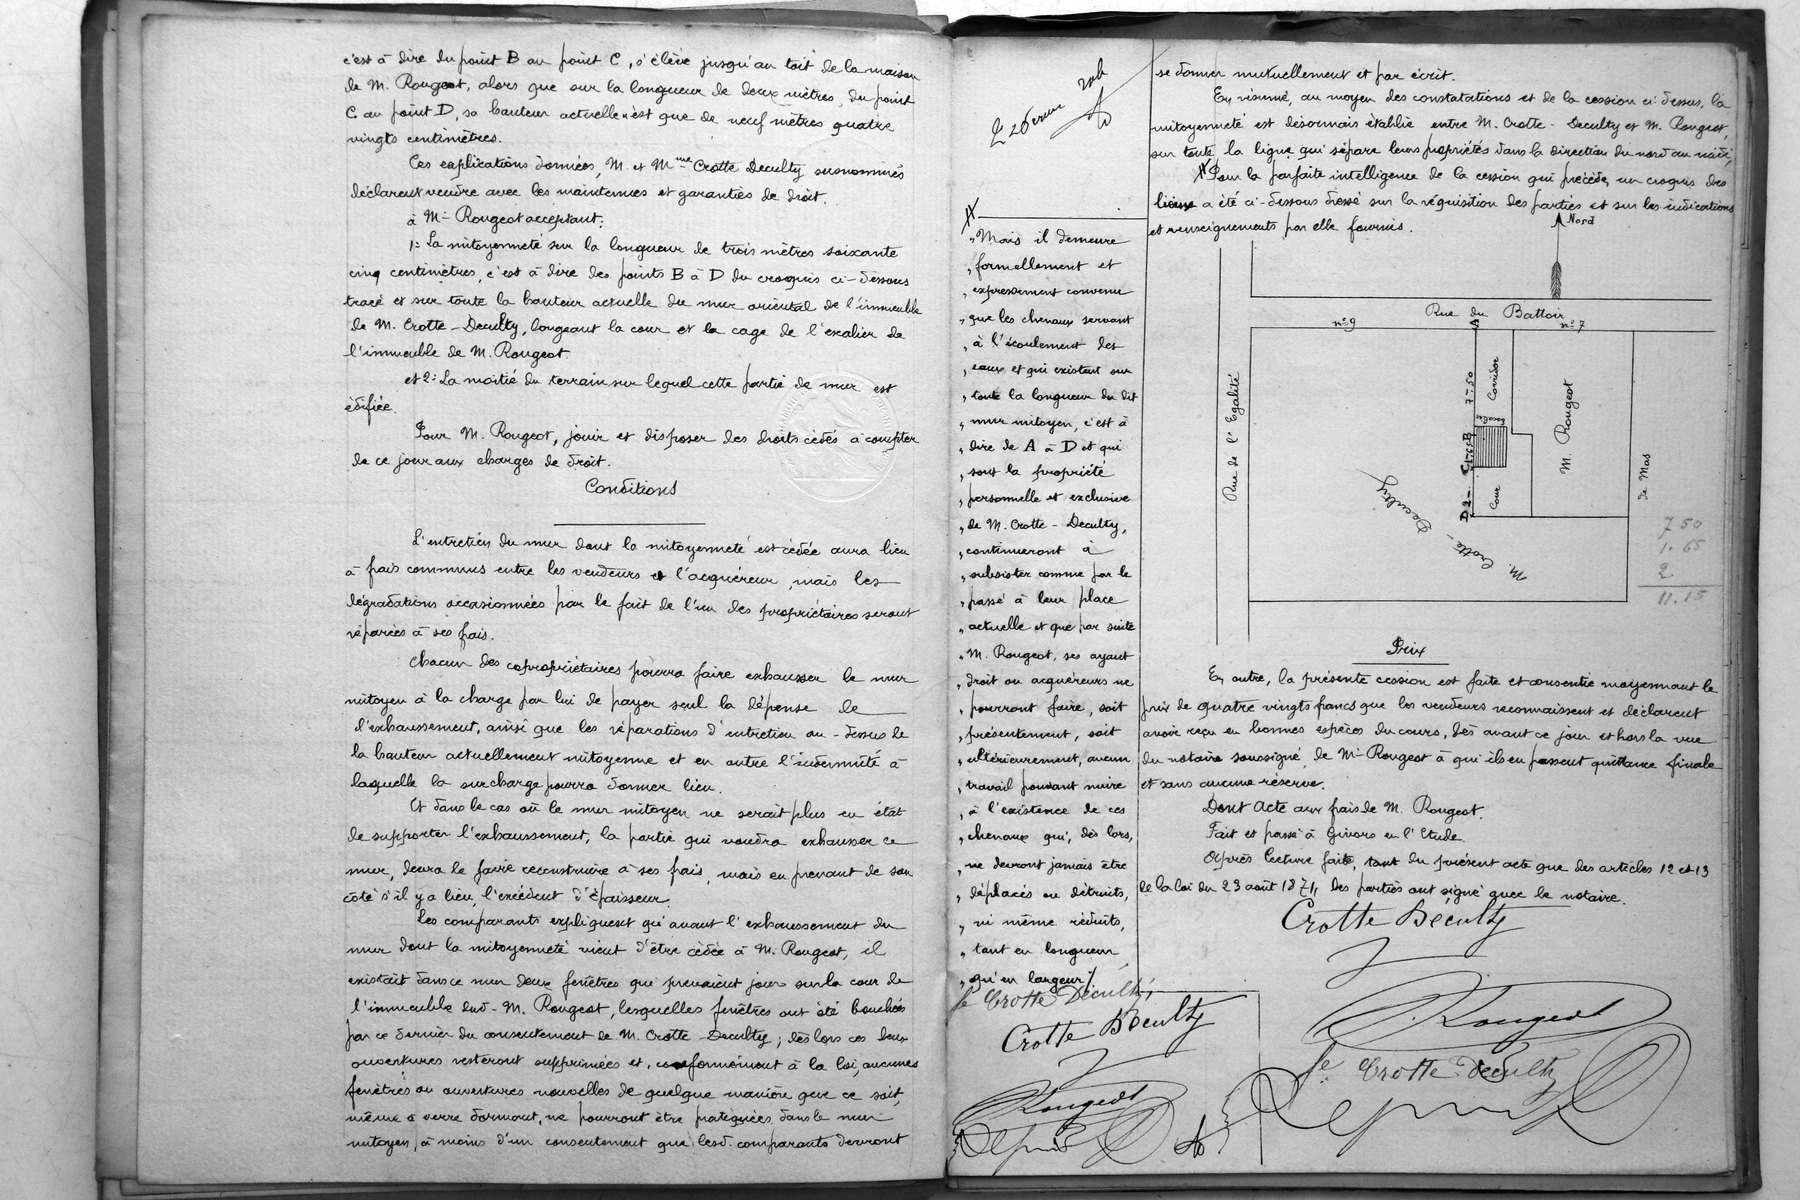 c'est à dire du point B au point C, s'élève jusqu'au toit de la maison
de M. Rougeot, alors que sur la longueur de deux mètres, du point
C au point D, sa hauteur actuelle n'est que de neuf mètres quatre
vingts centimètres.
Ces explications données, M. et Mme Crotte Deculty susnommés
déclarent vendre avec les maintenues et garanties de droit.
à M. Rougeot acceptant:
1º La mitoyenneté sur la longueur de trois mètres soixante
cinq centimètres, c'est à dire des points B à D du croquis ci-dessous
tracé et sur toute la hauteur actuelle du mur oriental de l'immeuble
de M. Crotte-Deculty, longeant la cour et la cage de l'escalier de
l'immeuble de M. Rougeot.
et 2º La moitié du terrain sur lequel cette partie de mur est
édifiée.
Pour M. Rougeot, jouir et disposer des droits cédés à compter
de ce jour aux charges de droit.
Conditions
L'entretien du mur dont la mitoyenneté est cédée aura lieu
à frais communs entre les vendeurs et l'acquéreur, mais les
dégradations occasionnées par le fait de l'un des propriétaires seront
réparées à ses frais.
Chacun des copropriétaires pourra faire exhausser le mur
mitoyen à la charge par lui de payer seul la dépense de
l'exhaussement, ainsi que les réparations d'entretien au-dessus de
la hauteur actuellement mitoyenne et en outre l'indemnité à
laquelle la surcharge pourra donner lieu.
Et dans le cas où le mur mitoyen ne serait plus en état
de supporter l'exhaussement, la partie qui voudra exhausser ce
mur, devra le faire reconstruire à ses frais, mais en prenant de son
côté s'il y a lieu, l'excédent d'épaisseur.
Les comparants expliquent qu'avant l'exhaussement du
mur dont la mitoyenneté vient d'être cédée à M. Rougeot, il
existait dans ce mur deux fenêtres qui prenaient jour sur la cour de
l'immeuble dud. M. Rougeot, lesquelles fenêtres ont été bouchées
par ce dernier du consentement de M. Crotte-Deculty; dès lors ces deux
ouvertures resteront supprimées et, conformément à la loi, aucunes
fenêtres ou ouvertures nouvelles de quelque manière que ce soit,
même à verre dormant, ne pourront être pratiquées dans le mur
mitoyen, à moins d'un consentement que lesd. comparants devront
2e & dernier rôle
"Mais il demeure
"formellement et
"expressément convenu
"que les cheneaux servant
"à l'écoulement des
"eaux et qui existent sur
"toute la longueur du dit
"mur mitoyen, c'est à
"dire de A à D et qui
"sont la propriété
"personnelle et exclusive
"de M. Crotte-Deculty,
"continueront à
"subsister comme par le
"passé à leur place
"actuelle et que par suite
"M. Rougeot, ses ayant
"droit ou acquéreurs ne
"pourront faire, soit
"présentement, soit
"ultérieurement, aucun
"travail pouvant nuire
"à l'existence de ces
"cheneaux qui, dès lors,
"ne devront jamais être
"déplacés ou détruits,
"ni même réduits,
"tant en longueur
"qu'en largeur/.
fe Crotte Deculty
Crotte Déculty
Rougeot
se donner mutuellement et par écrit.
En résumé, au moyen des constatations et de la cession ci-dessus, la
mitoyenneté est désormais établie entre M. Crotte-Deculty et M. Rougeot,
sur toute la ligne qui sépare leurs propriétés dans la direction du nord au midi;
Pour la parfaite intelligence de la cession qui précède, un croquis des
lieux a été ci-dessous dressé sur la réquisition des parties et sur les indications
et renseignements par elle fournis.
Nord
Rue du Battoir
nº 9
A
nº 7
Rue de l'Egalité
7m50
Corridor
Escalier
B
1m65
C
2m
D
Cour
M. Rougeot
de Mas
M. Crotte-Deculty
7 50
1. 65
2.
11. 15
Prix
En outre, la présente cession est faite et consentie moyennant le
prix de quatre vingts francs que les vendeurs reconnaissent et déclarent
avoir reçu en bonnes espèces du cours, dès avant ce jour et hors la vue
du notaire soussigné, de M. Rougeot à qui ils en passent quittance finale
et sans aucune réserve.
Dont Acte aux frais de M. Rougeot.
Fait et passé à Givors en l'Etude.
Après lecture faite, tant du présent acte que des articles 12 et 13
de la loi du 23 août 1871, les parties ont signé avec le notaire.
Crotte Déculty
Rougeot
fe Crotte Deculty